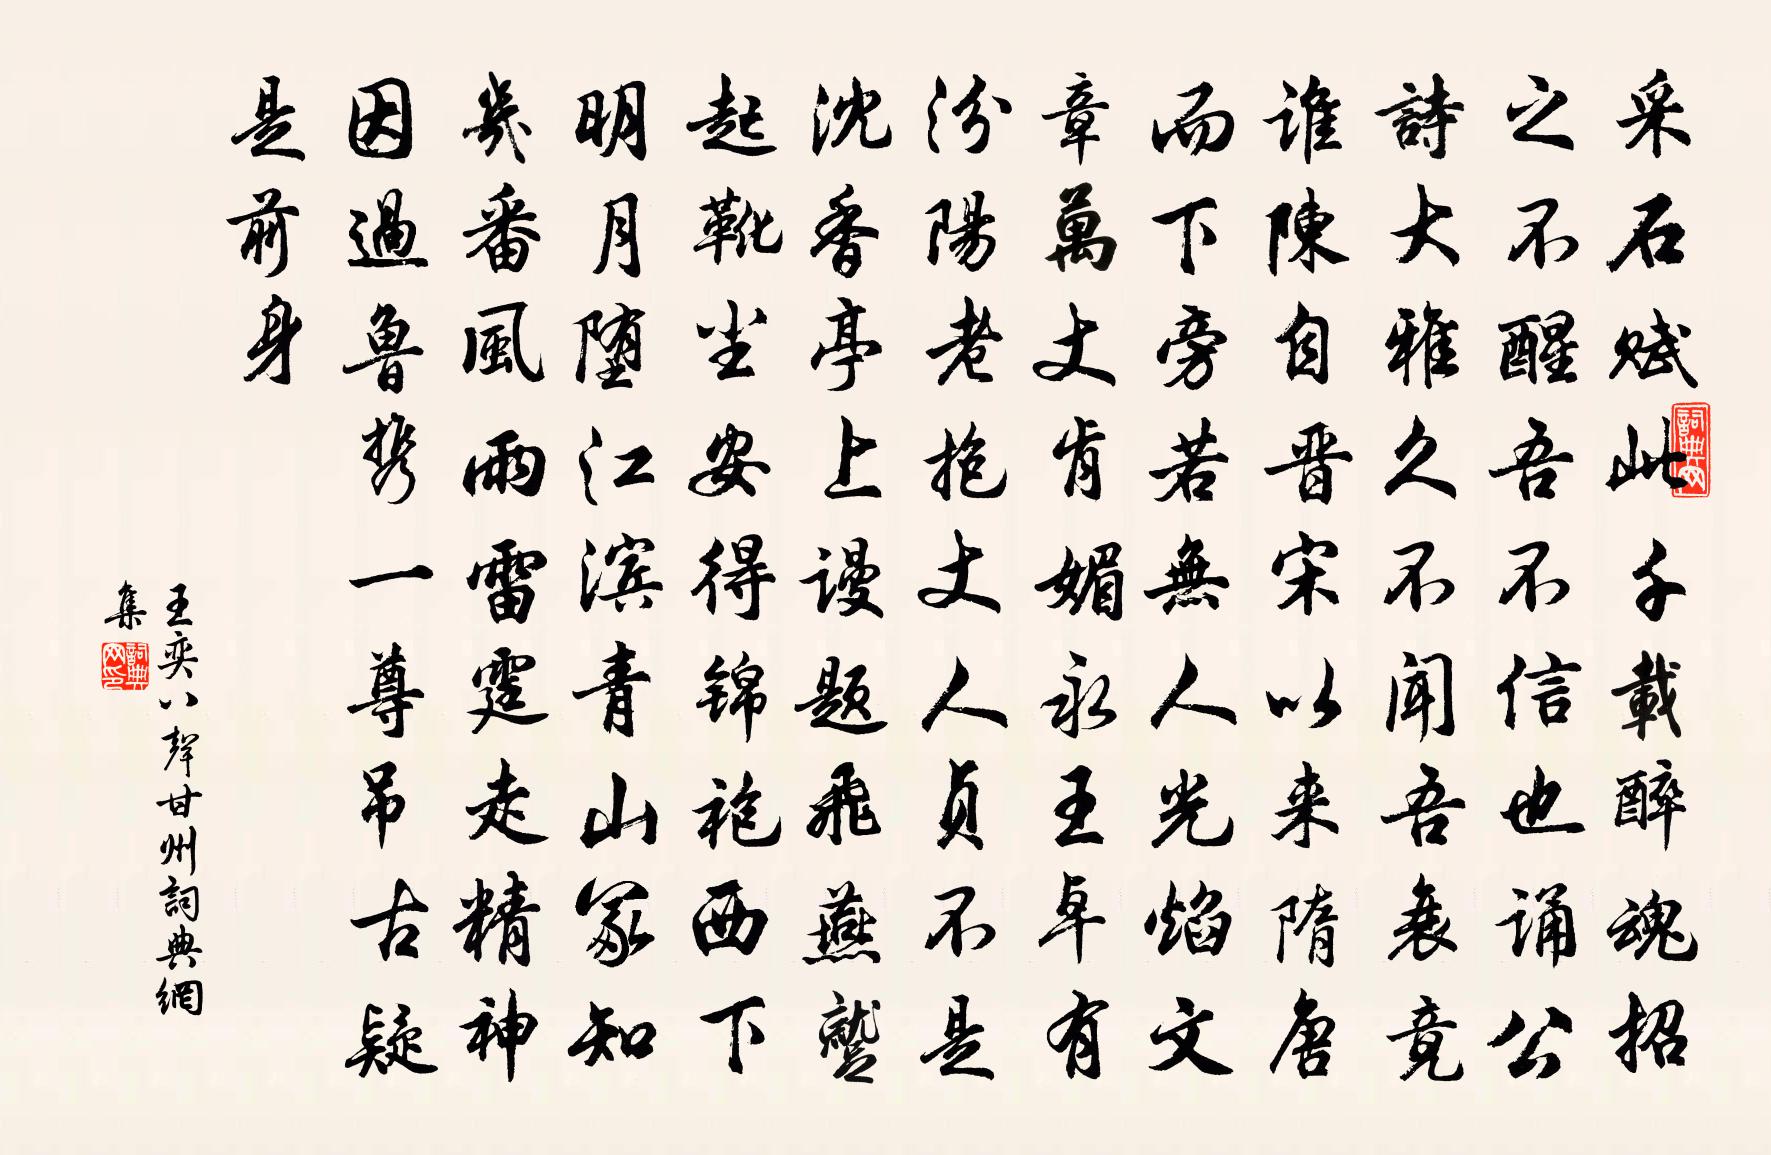 采石賦此千載醉魂招
之不醒吾不信也诵公
詩大雅久不闻吾衰竟
谁陳自晋宋以来隋唐
而下旁若無人光焰文
章萬丈肯媚永王卓有
汾陽老抱丈人貞不是
沈香亭上谩题飛燕蹙
起靴尘安得锦袍西下
明月堕江滨青山冢知
幾番風雨雷霆走精神
因過魯携一尊吊古疑
是前身
王奕八聲甘州詞典網
集
詞典网
詞典网印